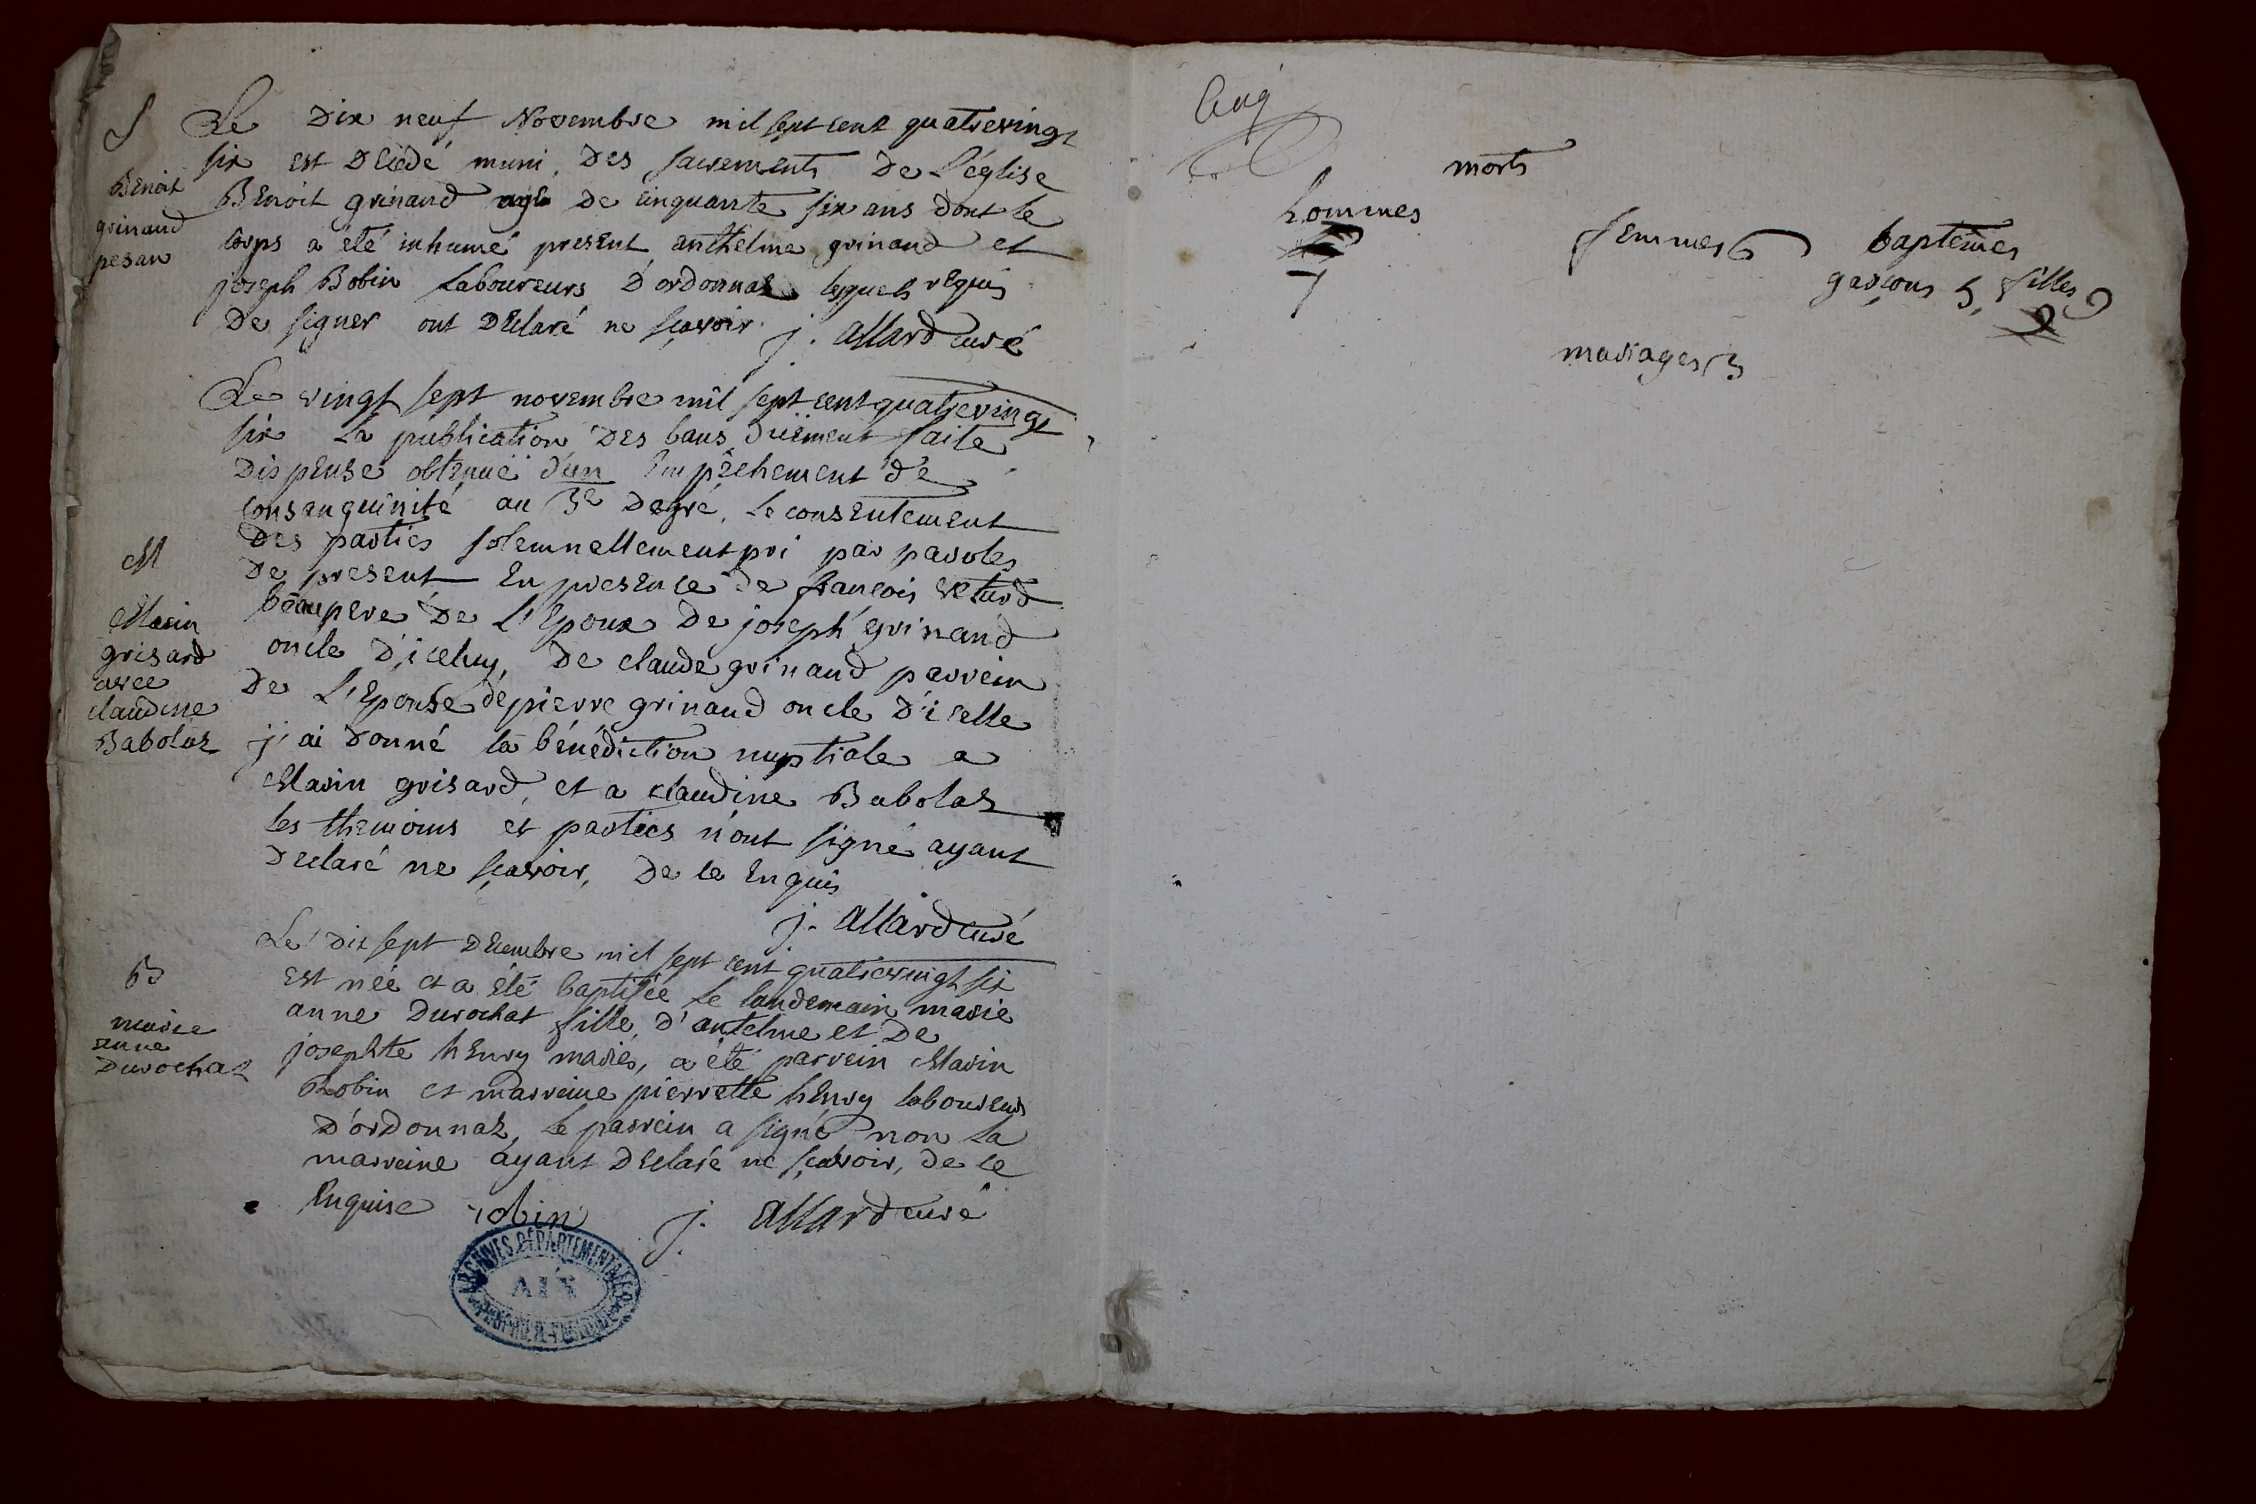 S
Benoit
grinand
pesan
Le Dix neuf Novembre mil sept cent quatrevingt
six est Décédé muni Des sacrements De l'église
Benoit grinand agé De cinquante six ans dont le
corps a été inhumé present anthelme grinand et
joseph Bobin Laboureurs D'ordonnaz lesquels requis
De signer ont Déclaré ne sçavoir. j. allard curé
M
Marin
grisard
avec
claudine
Babolaz
Le vingt sept novembre mil sept cent quatrevingt
six La publication Des bans Düement faite
Dispense obtenuë d'un Empêchement de
consanguinité au 3e Degré, Le consentement
Des parties solemnellement pri par paroles
De present En presence de françois veturd
beaupere De L'Epoux De joseph grinand
oncle D'iceluy, De claude grinand parrein
De L'Epouse de pierre grinand oncle D'icelle
j'ai Donné la bénédiction nuptiale a
Marin grisard, et a claudine Babolaz
les themoins et parties n'ont signé ayant
Déclaré ne sçavoir, De ce Enquis
j. allard curé
B
marie
anne
Durochat
Le Dix sept Décembre mil sept cent quatrevingt six
Est née et a été baptisée le landemain marie
anne Durochat fille d'antelme et De
josephte henry mariés, a été parrein Marin
Robin et marreine pierrette henry laboureurs
D'ordonnaz, Le parrein a signé non La
marreine ayant Déclaré ne sçavoir, de ce
Enquise robin j. allard curé
ARCHIVES DÉPARTEMENTALES
AIN
Cinq
morts
hommes
7
femmes 6
baptêmes
garçons 5, filles 9
9
mariages 3